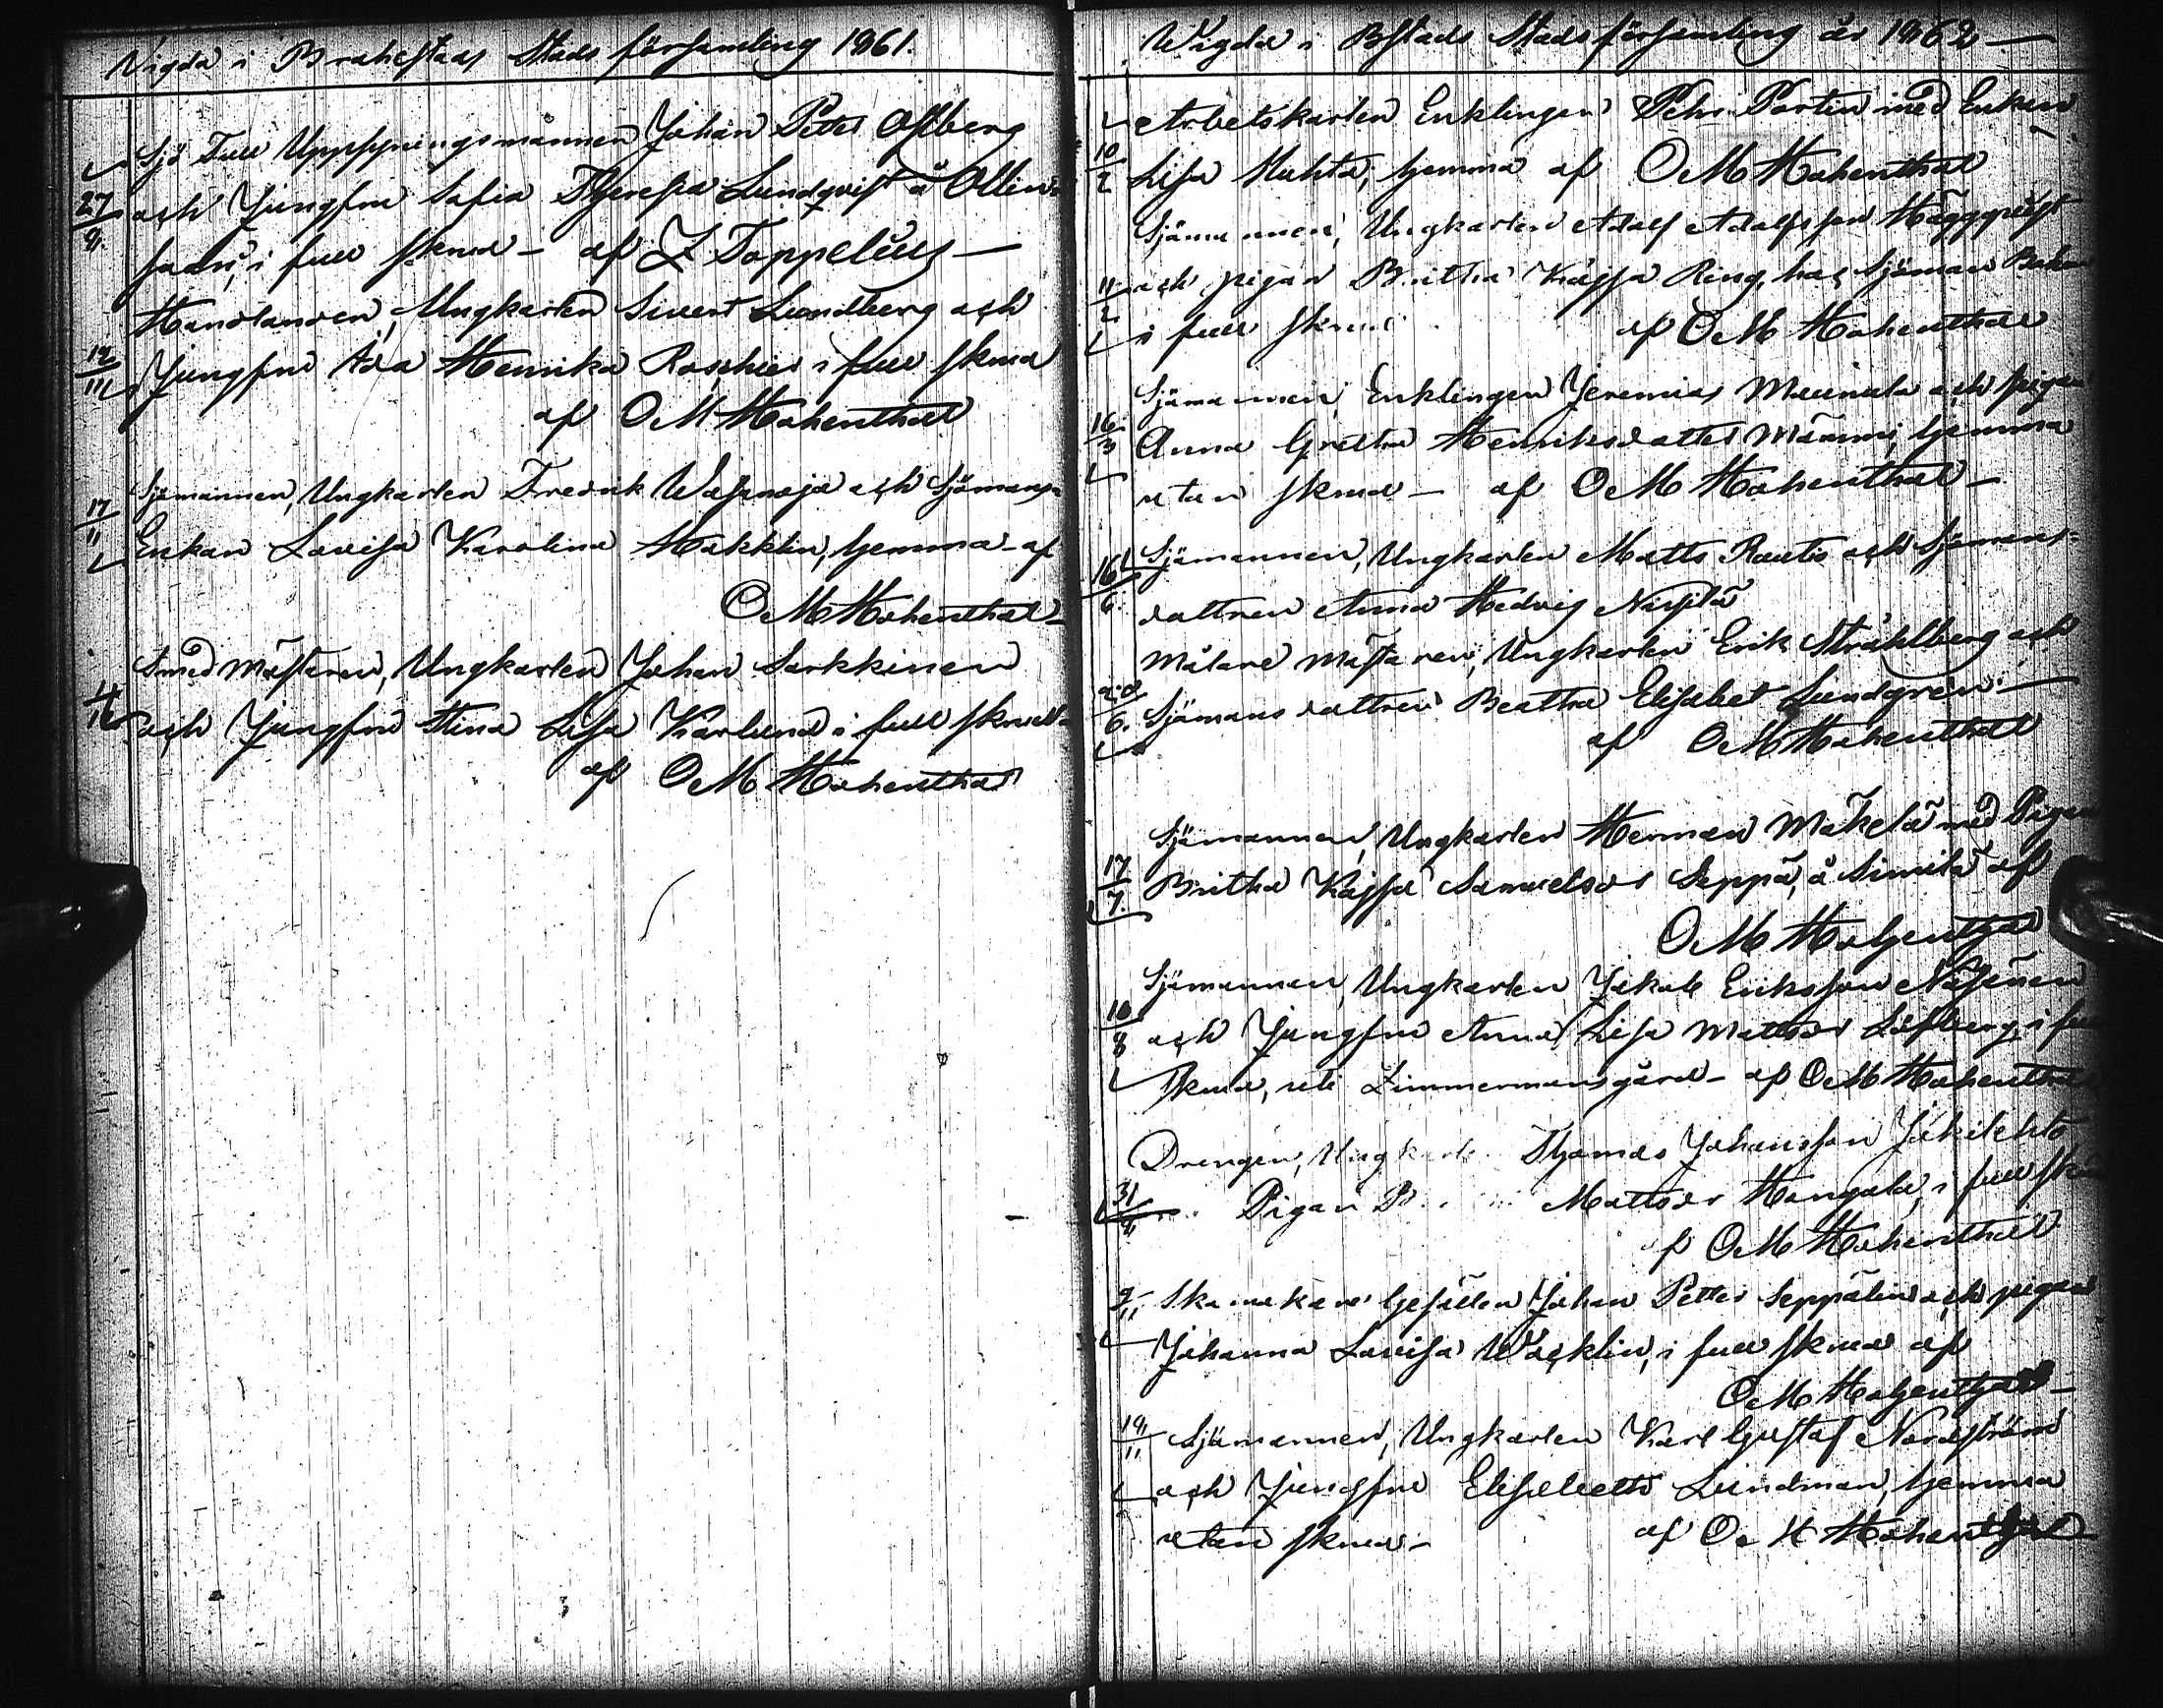 Vigda i Brahestads Stads församling 1861.
Sjö Tull Uppsyningsmannen Johan Petter Åfberg
27/9. och Jungfru Sofia Theresa Lundqvist å Ollin
i full skrud – af Z Toppelius –
Handlanden, Ungkarlen Sivert Lundberg och
Jungfru Ada Henrika Roschier i full skrud
af O M Hohenthal
Sjömannen, Ungkarlen Fredrik Wasaroja och Sjömans
17/11 Enkan Lovisa Karolina Hakklin, hemma – af
O M Hohenthal –
Smed Mästaren, Ungkarlen Johan Sarkkinen
och Jungfru Stina Lisa Karlund i full skrud –
af O M Hohenthal
Wigda i Bstads Stads församling år 1862 –
Arbetskarlen Enklingen Pehr Portin med Enkan
10/2 Lisa Huhta, hemma af O M Hohenthal
Sjömannen, Ungkarlen Adolf Adolfsson Häggqvist
11/2 och pigan Britha Kajsa Ring, hos Sjöman
i full skrud af O M Hohenthal
Sjömannen, Enklingen Jeremias Maunula och pigan
16/3 Anna Gretha Henriksdotter Mämmi, hemma
utan skrud – af O M Hohenthal –
Sjömannen, Ungkarlen Matts Rautio och Sjömans-
16/6. dottren Anna Hedvig Niskilä
Målare Mästaren, Ungkarlen Erik Stråhlberg och
22/6. Sjömans dottren Beatha Elisabet Lundgren –
af O M Hohenthal
Sjömannen, Ungkarlen Herman Mäkelä med Pigan
17/7. Britha Kajsa Samuelsdr Seppä, å Simila af
O M Hohenthal
Sjömannen, Ungkarlen Jakob Eriksson Näsänen
10/8 och Jungfru Anna Lisa Mattsdr Löfberg, i full
skrud, uti Zimmermans gård – af O M Hohenthal
Drengen, Ungkarlen Thomas Johansson Jokilehto
31/ Pigan B Mattsdr Hangala, i full skrud
af O M Hohenthal
Skomakare Gesällen Johan Petter Seppälin och pigan
Johanna Lovisa Wacklin, i full skrud af
O M Hohenthal –
19/11 Sjömannen, Ungkarlen Karl Gustaf Nordström
och Jungfru Elisabeth Lundman, hemma
utan skrud – af O M Hohenthal